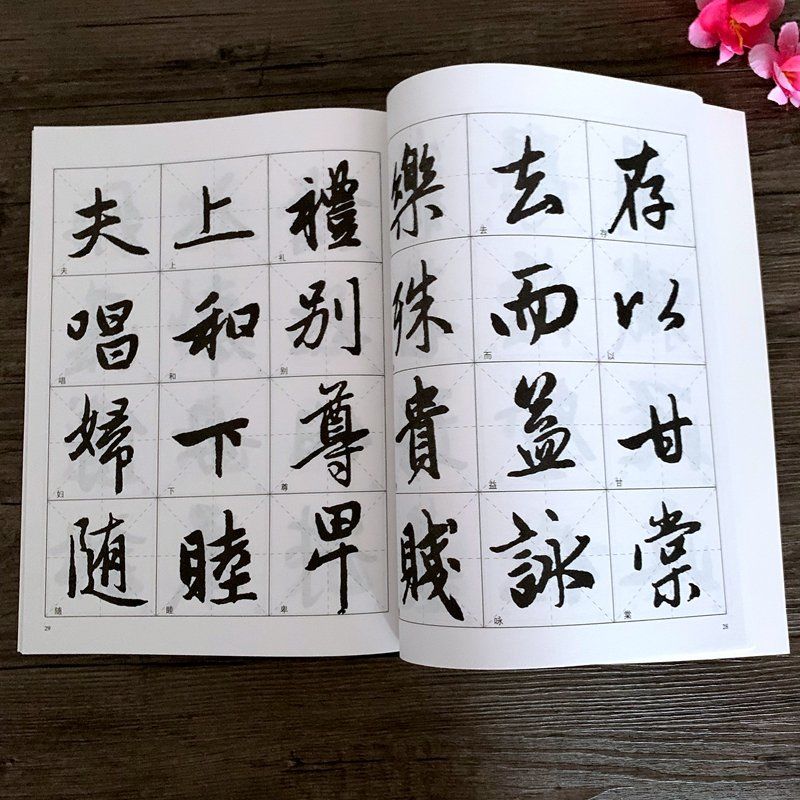 存以甘棠
去而益詠
樂殊貴賤
禮別尊卑
上和下睦
夫唱婦随
存
以
甘
棠
去
而
益
咏
礼
别
尊
卑
上
和
下
睦
夫
唱
妇
随
28
29